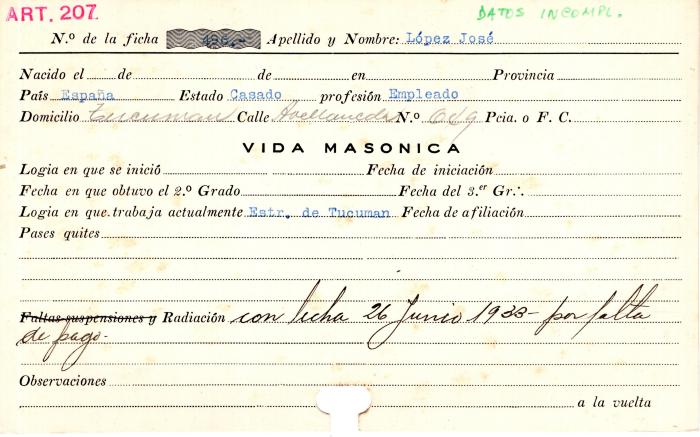 ART. 207.
DATOS INCOMPL.
N.º de la ficha 486.- Apellido y Nombre: López José
Nacido el de de en Provincia
País España Estado Casado profesión Empleado
Domicilio Tucuman Calle Avellaneda N.º 649 Pcia. o F. C.
VIDA MASONICA
Logia en que se inició Fecha de iniciación
Fecha en que obtuvo el 2.º Grado Fecha del 3.er Gr∴
Logia en que trabaja actualmente Estr. de Tucuman Fecha de afiliación
Pases quites
Faltas suspensiones y Radiación con fecha 26 Junio 1933- por falta
de pago-
Observaciones
a la vuelta